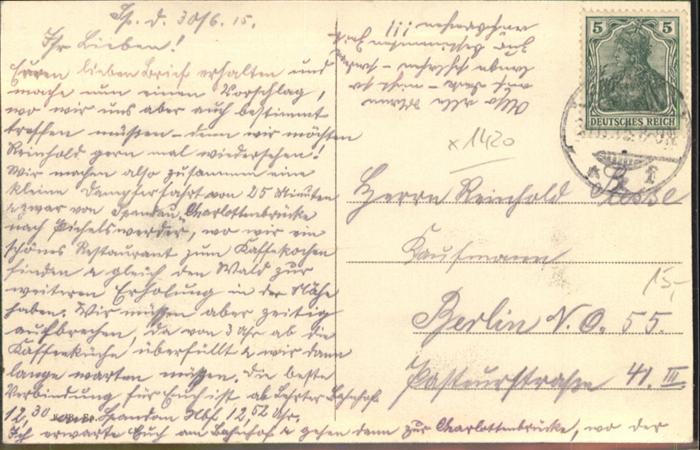 Sp. d. 30/6. 15.
Ihr Lieben!
Euren lieben Brief erhalten und
mache nun einen Vorschlag,
wo wir uns aber auch bestimmt
treffen müssen – denn wir möchten
Reinhold gern mal wiedersehen!
Wir machen also zusammen eine
kleine Dampferfahrt von 25 Minuten
& zwar von Spandau, Charlottenbrücke
nach Pichelswerder, wo wir ein
schönes Restaurant zum Kaffeekochen
finden & gleich den Wald zur
weiteren Erholung in der Nähe
haben. Wir müssen aber zeitig
aufbrechen, da von 3 Uhr ab die
Kaffeeküche überfüllt & wir dann
lange warten müssen. Die beste
Verbindung für Euch ist ab Lehrter Bahnhof
12,30 Spandau Hbf 12,52 Uhr.
Ich erwarte Euch am Bahnhof & gehen dann zur Charlottenbrücke, wo der
Also alle
zur bestimmten Zeit
5 5
DEUTSCHES REICH
x 1420
Herrn Reinhold
Kaufmann
15,-
Berlin N. O. 55.
Pasteurstraße 41. III